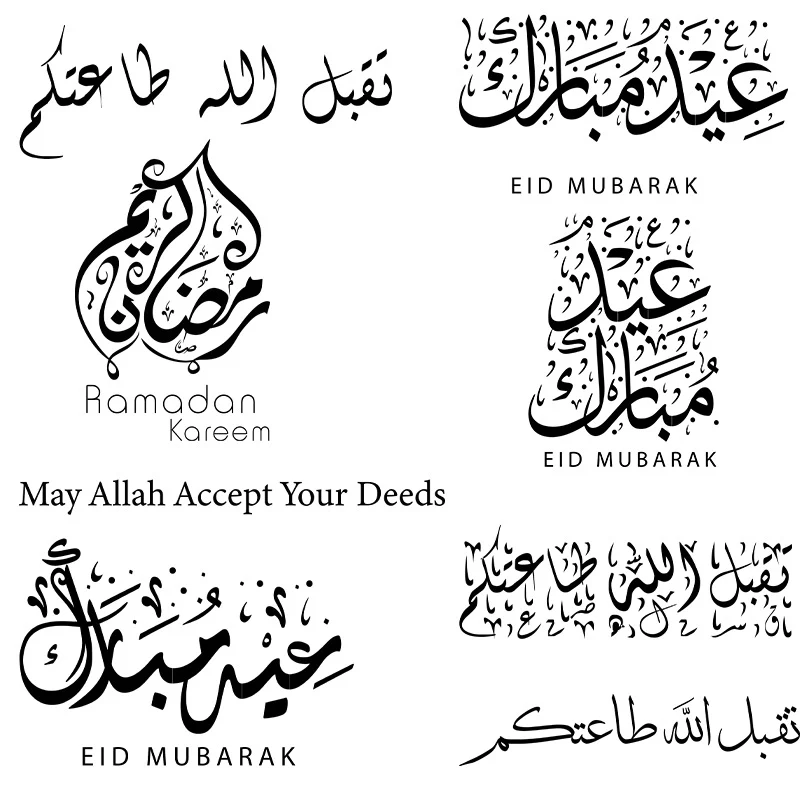 تقبل الله طاعتكم
عِيْدٌ مُبَارَك
EID MUBARAK
رمضان الكريم
Ramadan
Kareem
عِيْدٌ
مُبَارَك
EID MUBARAK
May Allah Accept Your Deeds
عيد مُبَارَك
EID MUBARAK
تقبل اللّٰه طاعتكم
تقبل اللّٰه طاعتكم